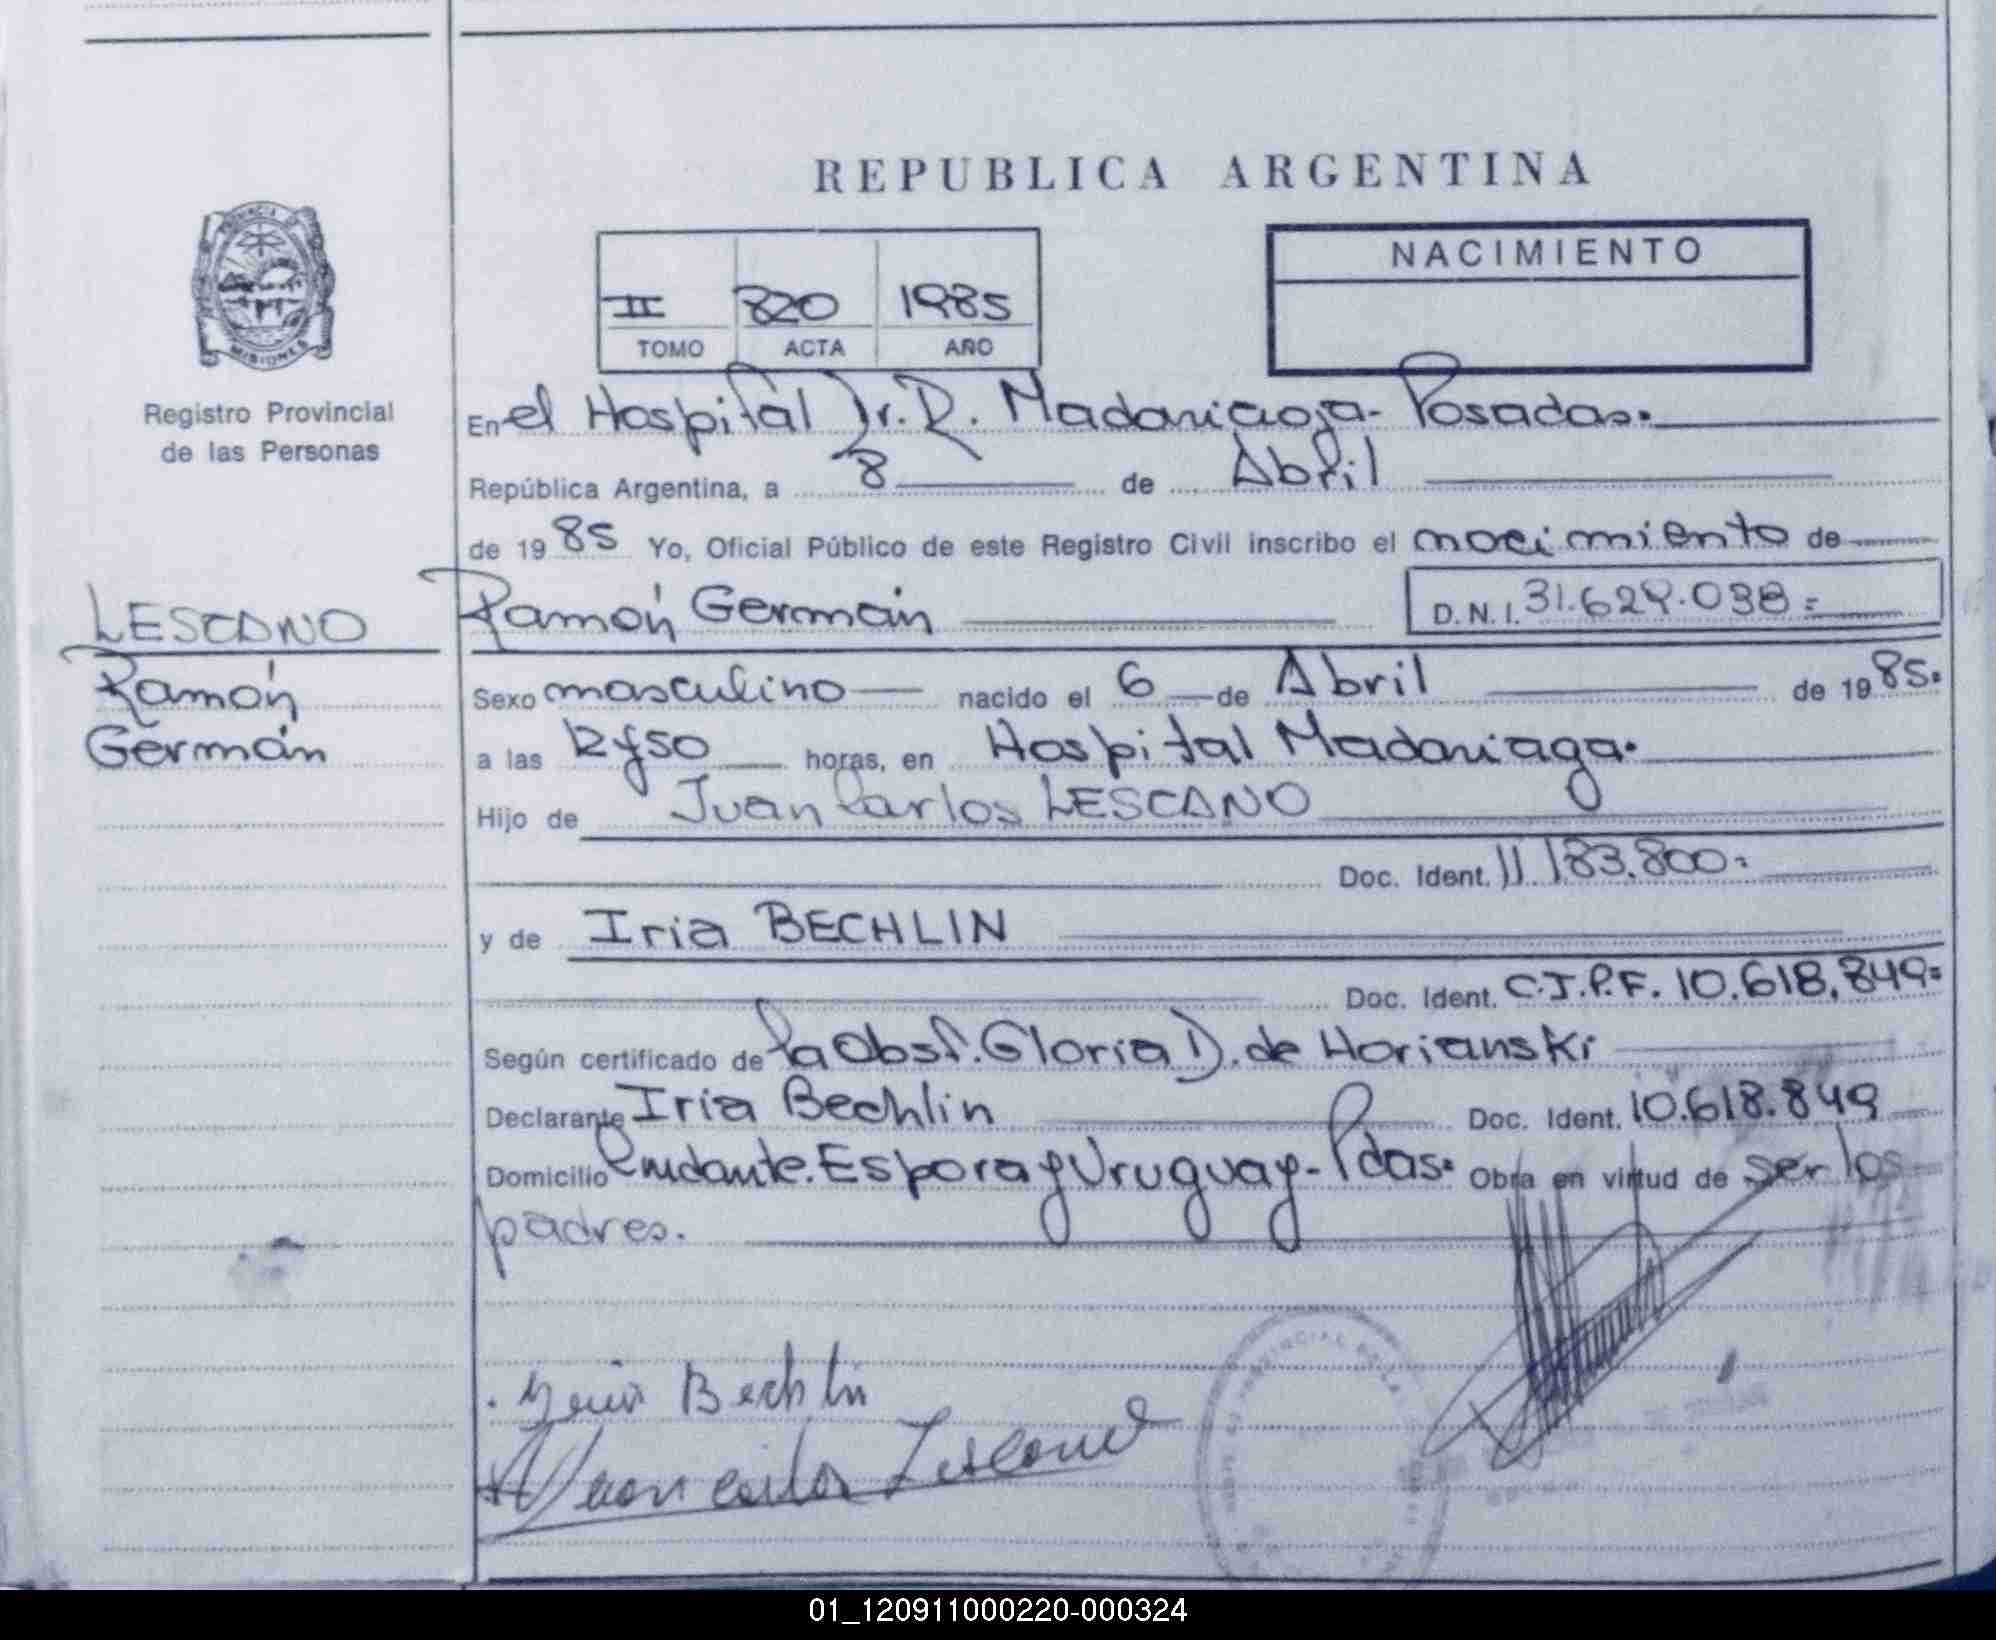 REPUBLICA ARGENTINA
PROVINCIA
MISIONES
Registro Provincial
de las Personas
II 820 1985
TOMO ACTA AÑO
NACIMIENTO
En el Hospital Dr. R. Madariaga- Posadas.
República Argentina, a 8 de Abril
de 1985 Yo, Oficial Público de este Registro Civil inscribo el nacimiento de
LESCANO
Ramón
Germán
Ramón Germán D.N.I. 31.624.038=
Sexo masculino nacido el 6 de Abril de 1985.
a las 12 y 50 horas, en Hospital Madariaga.
Hijo de Juan Carlos LESCANO
Doc. Ident. 11.183.800=
y de Iria BECHLIN
Doc. Ident. C.I.P.F. 10.618.849=
Según certificado de la Obst. Gloria D. de Horianski
Declarante Iria Bechlin Doc. Ident. 10.618.849
Domicilio Cmdante. Espora y Uruguay- Pdas. Obra en virtud de ser los
padres.
Iria Bechlin
Juan Carlos Lescano
01_120911000220-000324